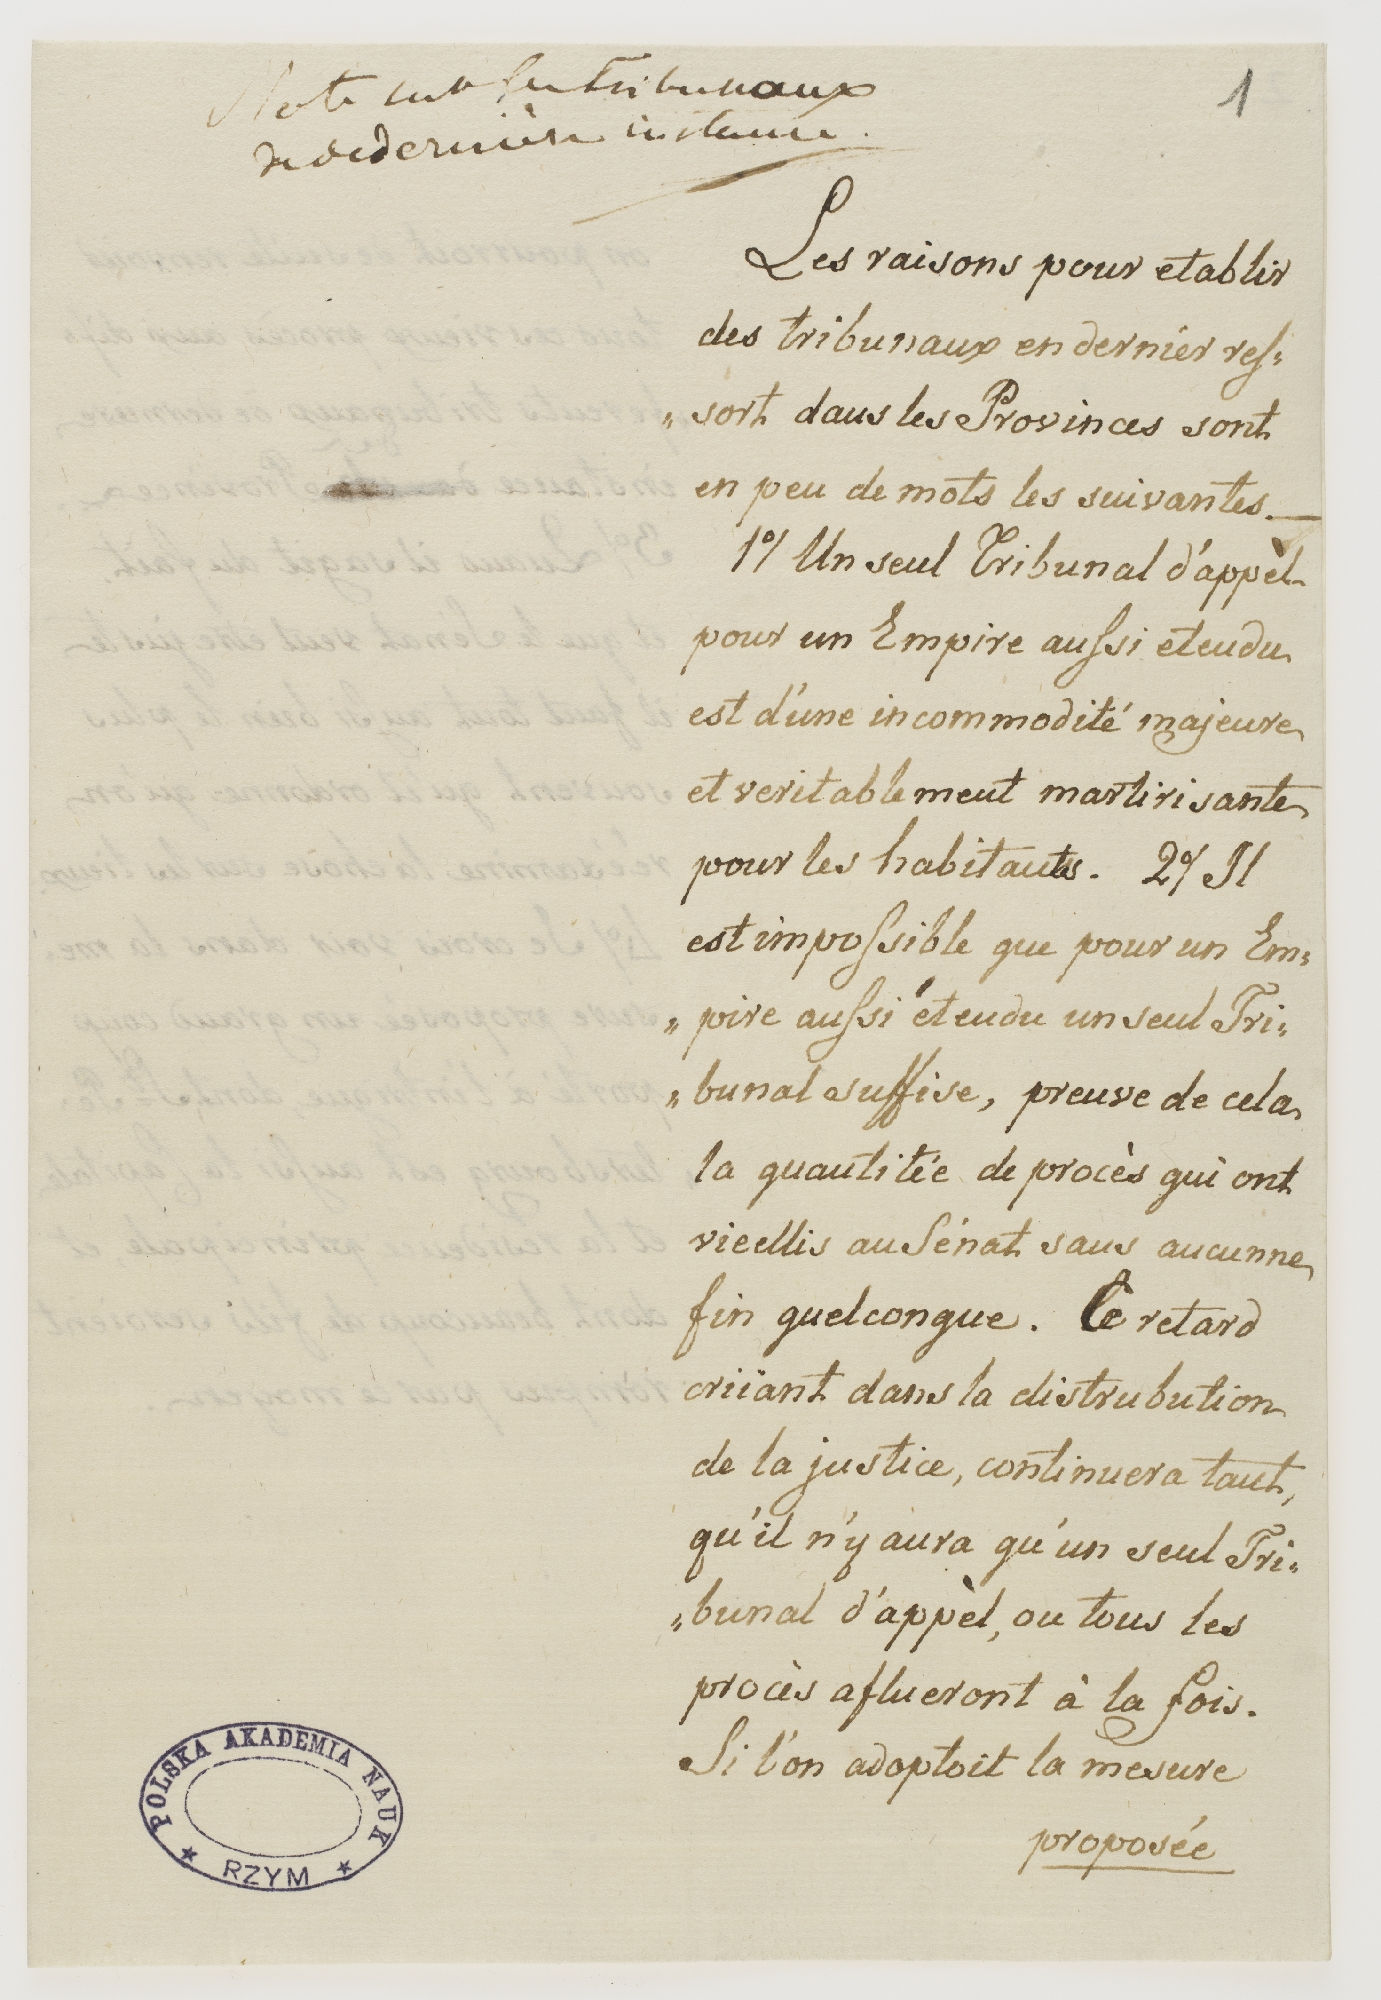 Note sur les Tribunaux
de dernière instance.
1
Les raisons pour etablir
des tribunaux en dernier res⸗
„ sort dans les Provinces sont
en peu de mots les suivantes.—
1º/ Un seul Tribunal d'appèl
pour un Empire aussi etendu
est d'une incommodité majeure
et veritablement martirisante
pour les habitants. 2º/ Il
est impossible que pour un Em⸗
„ pire aussi étendu un seul Tri⸗
„ bunal suffise, preuve de cela
la quantitée de procès qui ont
vieellis au Sénat sans aucunne
fin quelconque. Ce retard
criiant dans la distrubution
de la justice, continuera tant,
qu'il n'y aura qu'un seul Tri⸗
„ bunal d'appèl, ou tous les
procès aflueront à la fois.
Si l'on adoptoit la mesure
proposée
POLSKA AKADEMIA NAUK
★ RZYM ★